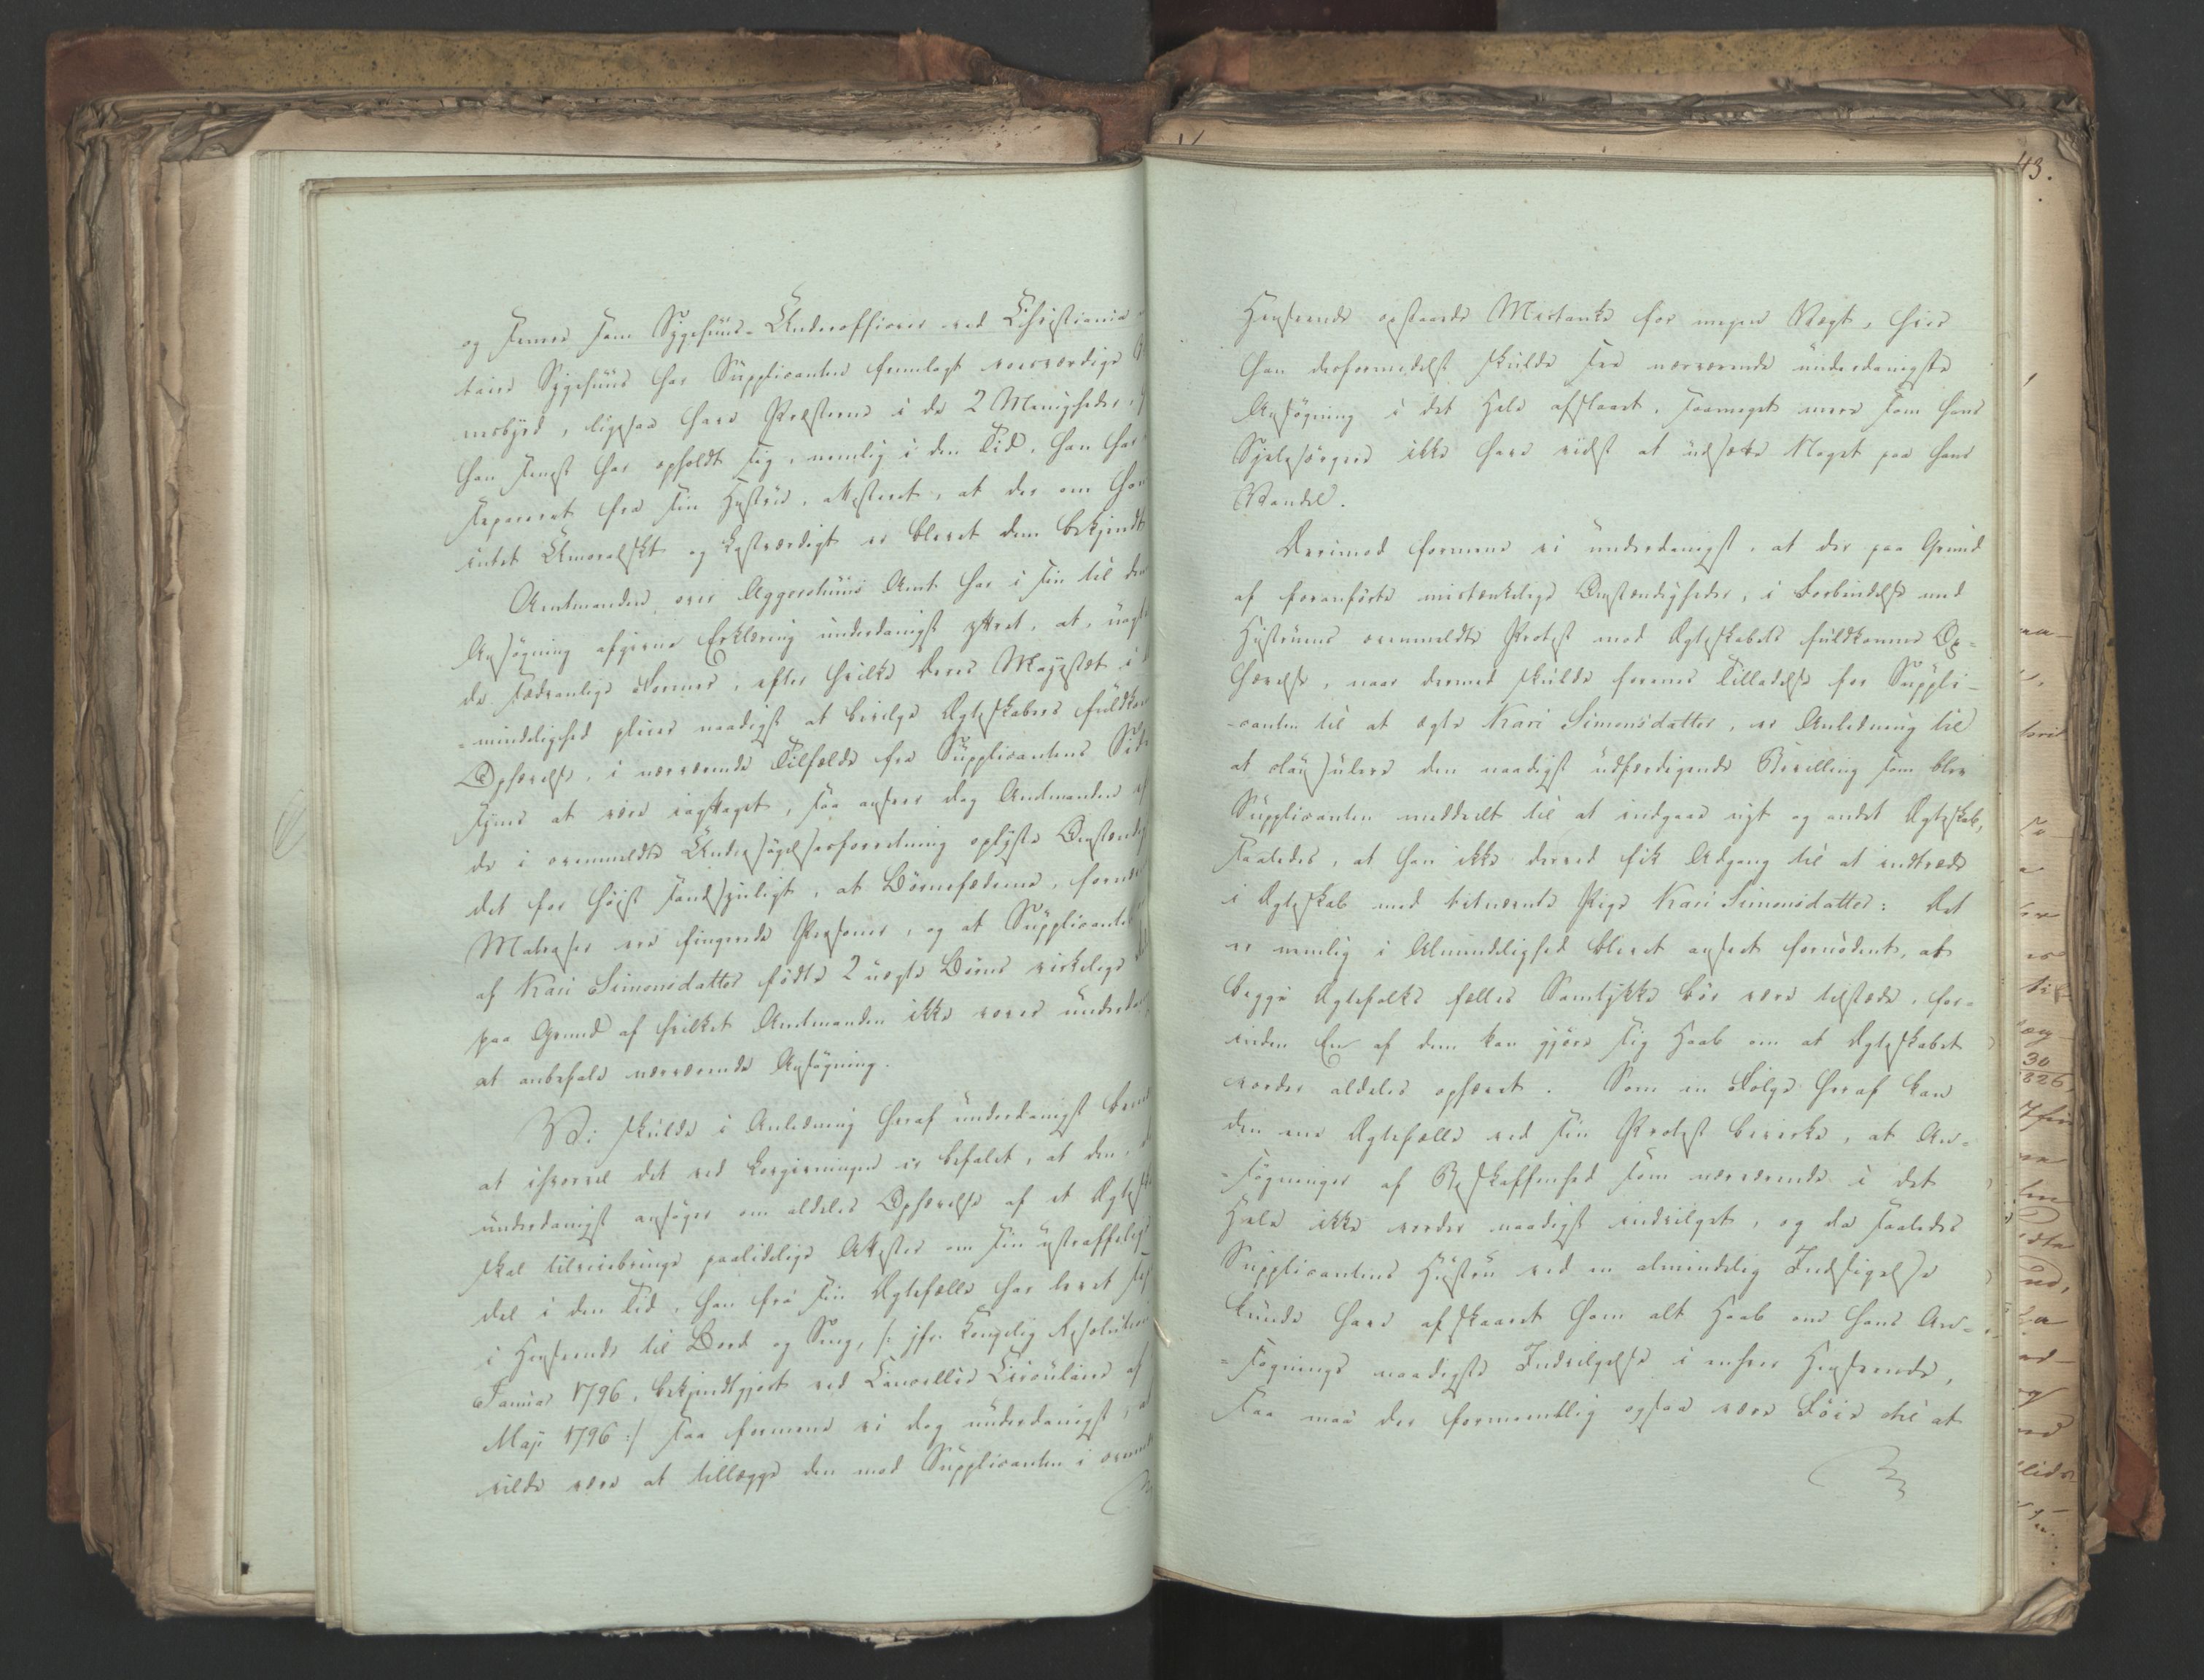 og senere som Sygehuus-Underofficier ved Christiania
tairs Sygehuus har Supplicanten fremlagt roesværdige
nesbyrd, ligesaa have Præsterne i de 2 Menigheder,
han senest har opholdt sig, nemlig i den Tid, han har
separeret fra sin Hustrue, attesteret, at der om ham
intet Umoralskt og lastværdigt er blevet dem bekjendt
Amtmanden over Aggershuus Amt har i sin til den
Ansøgning afgivne Erklæring underdanigst yttret, at,
de sædvanlige Former, efter hvilke Deres Majestæt i
-mindelighed pleier naadigst at bevilge Ægteskabers fuldkom
Ophævelse, i nærværende Tilfælde fra Supplicantens Side
synes at være iagttaget, saa anseer dog Amtmanden
de i ovenmeldte Undersøgelsesforretning oplyste Omstændig
det for høist sandsynligt, at Barnefædrene,
Matroser ere fingerede Personer, og at Supplicanten
af Kari Simonsdatter fødte 2 uægte Børns virkelige
paa Grund af hvilket Amtmanden ikke vover underda
at anbefale nærværende Ansøgning.
Vi skulde i Anledning heraf underdanigst bem
at ihvorvel det ved Lovgivningen er befalet, at den,
underdanigst ansøger om aldeles Ophævelse af et Ægtesk
skal tilveiebringe paalidelige Attester om sin ustraffelige
del i den Tid, han fra sin Ægtefælle har levet sep
i Henseende til Bord og Seng, /: jfr. Kongelig Resolution
Januar 1796, bekjendtgjort ved Cancellie Circulaire af
Maji 1796 :/ saa formene vi dog underdanigst, a
vilde være at tillægge den mod Supplicanten i ovenm
43.
Henseende opstaaede Mistanke for megen Vægt, hvis
han derformedelst skulde see nærværende underdanigste
Ansøgning i det Hele afslaaet, saameget mere som hans
Sjelesørgere ikke have vidst at udsætte Noget paa hans
Vandel.
Derimod formene vi underdanigst, at der paa Grund
af foranførte mistænkelige Omstændigheder, i Forbindelse med
Hustruens ovenmeldte Protest mod Ægteskabets fuldkomne Op-
hævelse, naar dermed skulde forenes Tilladelse for Suppli-
-canten til at ægte Kari Simonsdatter, er Anledning til
at clausulere den naadigst udfærdigende Bevilling som blev
Supplicanten meddeelt til at indgaae nyt og andet Ægteskab,
saaledes, at han ikke derved fik Adgang til at indtræde
i Ægteskab med bemeldte Pige Kari Simonsdatter: Det
er nemlig i Almindelighed blevet anseet fornødent, at
begge Ægtefolks fælles Samtykke bør være tilstæde, for-
inden En af dem kan gjøre sig Haab om at Ægteskabet
vorder aldeles ophævet. Som en Følge heraf kan
den ene Ægtefælle ved sin Protest bevirke, at An-
-søgninger af Beskaffenhed som nærværende i det
Hele ikke vorder naadigst indvilget, og da saaledes
Supplicantens Hustru ved en almindelig Indsigelse
kunde have afskaaret ham alt Haab om hans An-
-søgnings naadigste Indvilgelse i enhver Henseende,
saa maa der formeentlig ogsaa være Føie til at
30
826